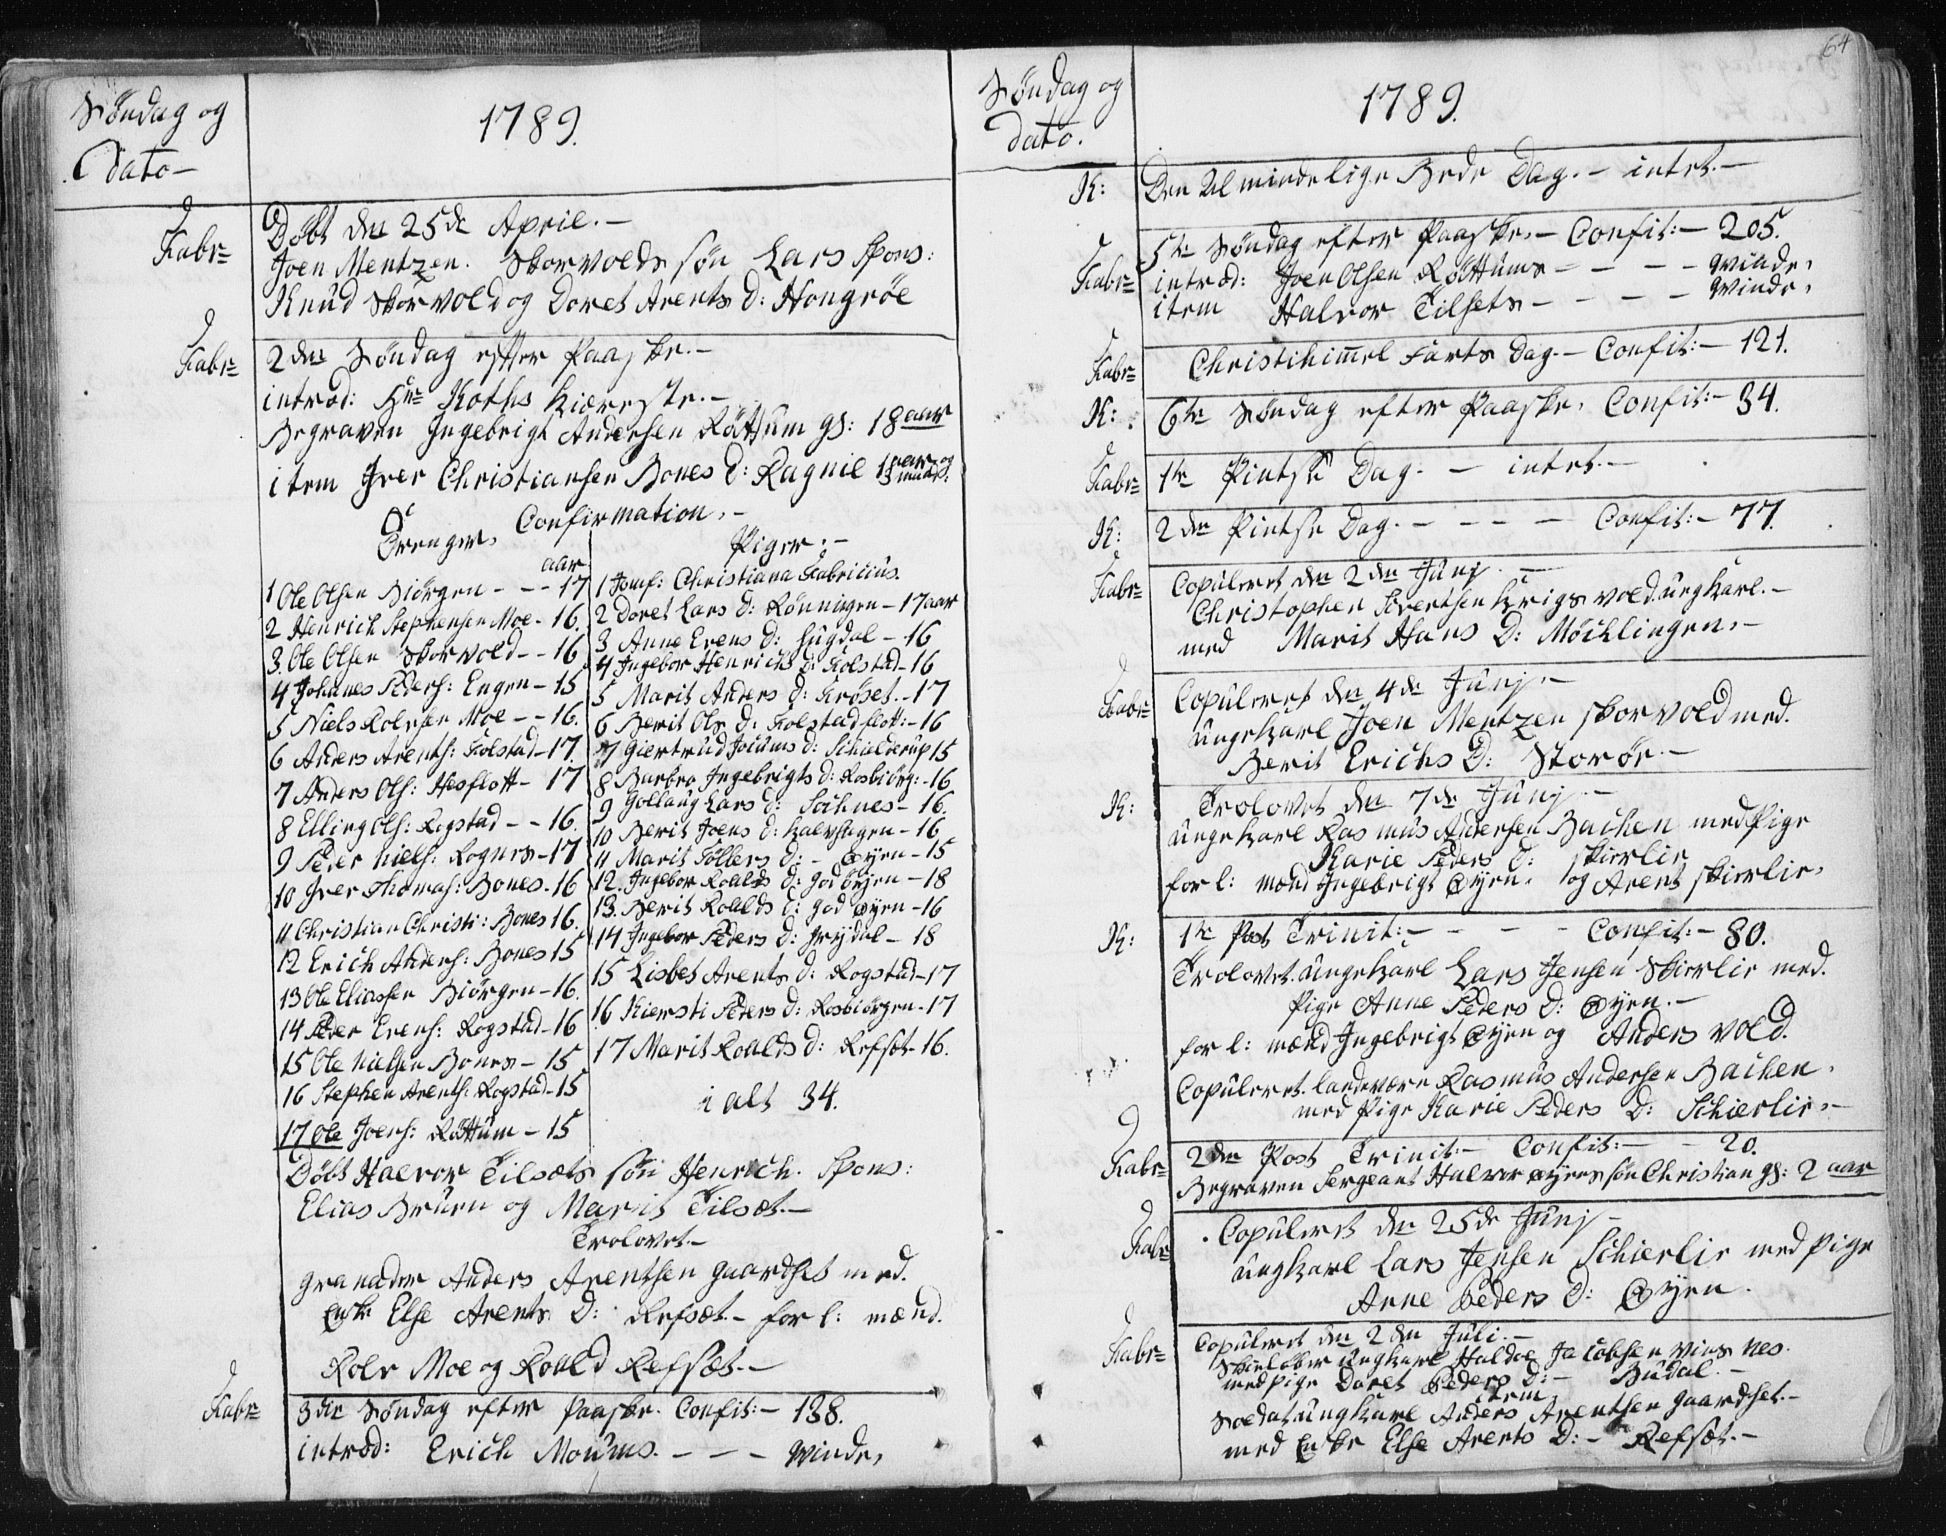 Søndag og
dato –
1789.
Fabr=
Døbt den 25de April. –
Joen Mentzen Skorvolds søn Lars Spons:
Knud Skorvold og Doret Arents d: Hongröe
Fabr=
2den Søndag efter Paaske. –
introd: Hr= Koths Kiæreste. –
Begraven Ingebrigt Andersen Røttum gl: 18 aar
item Iver Christiansen Bones d: Ragnil 1 aar og
Confirmation. –
Drenger.
aar
1 Ole Olsen Biørgen - - - 17
2 Henrich Stephensen Moe - 16
3 Ole Olsen Skorvold - - 16
4 Johanes Peders: Engen - 15
5 Niels Rolvsen Moe - - 16.
6 Anders Arents: Folstad - 17.
7 Anders Ols: Hesflott - 17
8 Elling Ols: Rogstad - - 16.
9 Peder Niels: Rognes - 17
10 Iver Thomas: Bones - 16
11 Christian Christi: Bones 16.
12 Erich Anders: Bones 15
13 Ole Eliassen Biörgen - 16.
14 Peder Evens: Rogstad - 16
15 Ole Nielsen Bones - 15
16 Stephen Arents: Rogstad - 15
17 Ole Joens: Røttum - 15
Piger. –
1 Jomf: Christiana Fabricius.
2 Doret Lars d: Rönningen - 17 aar
3 Anne Evens d: Hugdal - 16
4 Ingebor Henrichs d: Folstad - 16
5 Marit Anders d: Krøset. - 17
6 Berit Ols d: Folstadflott: - 16
7 Giertrud Jocums d: Schulderup 15
8 Barbro Ingebrigts d: Rosbiörg: - 16
9 Gollaug Lars d: Sochnes - 16.
10 Berit Joens d: Kalvhagen - 16
11 Marit Föllers d: - Øyen - 15
12. Ingebor Roalds d: God Øyen - 18
13. Berit Roalds d: God Øyen - 16
14 Ingebor Peders d: Frydal - 18
15 Lisbet Arents d: Rogstad - 17
16 Kiersti Peders d: Rosbiörgen - 17
17 Marit Roalds d: Refsæt - 16.
i alt 34.
Døbt Halvor Tilsæts søn Henrich. Spons:
Elias Bruun og Marit Tilsæt. –
Trolovet –
Granader Anders Arentsen Gaardset med.
Enke Else Arents D: Refsæt. – for l: mænd.
Rolv Moe og Roald Refsæt. –
Fabr=
3die Søndag efter Paaske. Confit: – 138.
introd: Erich Moums. - - - Qvinde.
64
Søndag og
dato.
1789.
K:
Den Almindelige Bede Dag. – intet. –
Fabr=
5te Søndag efter Paaske. – Confit: – 205.
introd: Joen Olsen Røttums - - - - Qvinde.
item Halvor Tilsets - - - - Qvinde.
Fabr=
Christihimmel Farts Dag. – Confit: – 121.
K:
6te Søndag efter Paaske. Confit: – 34.
Fabr=
1te Pintse Dag. – intet. –
K:
2den Pintse Dag. - - - - Confit: – 77.
Fabr=
Copuleret den 2den Junj. –
Christopher Sivertsen Krigsvold. ungkarl. –
med Marit Hans D: Möchlingen. –
Fabr=
Copuleret den 4de Junj. –
ungekarl Joen Mentzen Skorvold med.
Berit Erichs D: Storør. –
K:
Trolovet den 7de Junj. –
ungekarl Rasmus Andersen Bachen med Pige
Karie Peders D: Skierlie
for l: mænd Ingebrigt Øyen. og Arent Skierlie.
K:
1te Post Trinit: - - - - Confit: – 80.
Trolovet. ungekarl Lars Jensen Skierlie med.
Pige Anne Peders D: Øyen. –
for l: mænd Ingebrigt Øyen og Anders Vold.
Copuleret. Landværn Rasmus Andersen Bachen.
med Pige Karie Peders D: Schierlie. –
Fabr=
2den Post Trinit. – Confit: – – 20.
Begraven Sergeant Halvor Øyens søn Christian gl: 2 aar
Fabr=
Copuleret den 25de Junj –
ungkarl Lars Jensen Schierlie med Pige
Anne Peders D: Øyen.
Fabr=
Copuleret den 2den Juli. –
Skieløber ungkarl Haldoe Jacobsen Vinsnes.
med pige Doret Peders D: – Budal. –
item
Soldat ungkarl Anders Arentsen Gaardset. –
med Enke Else Arents D: – Refsæt. –